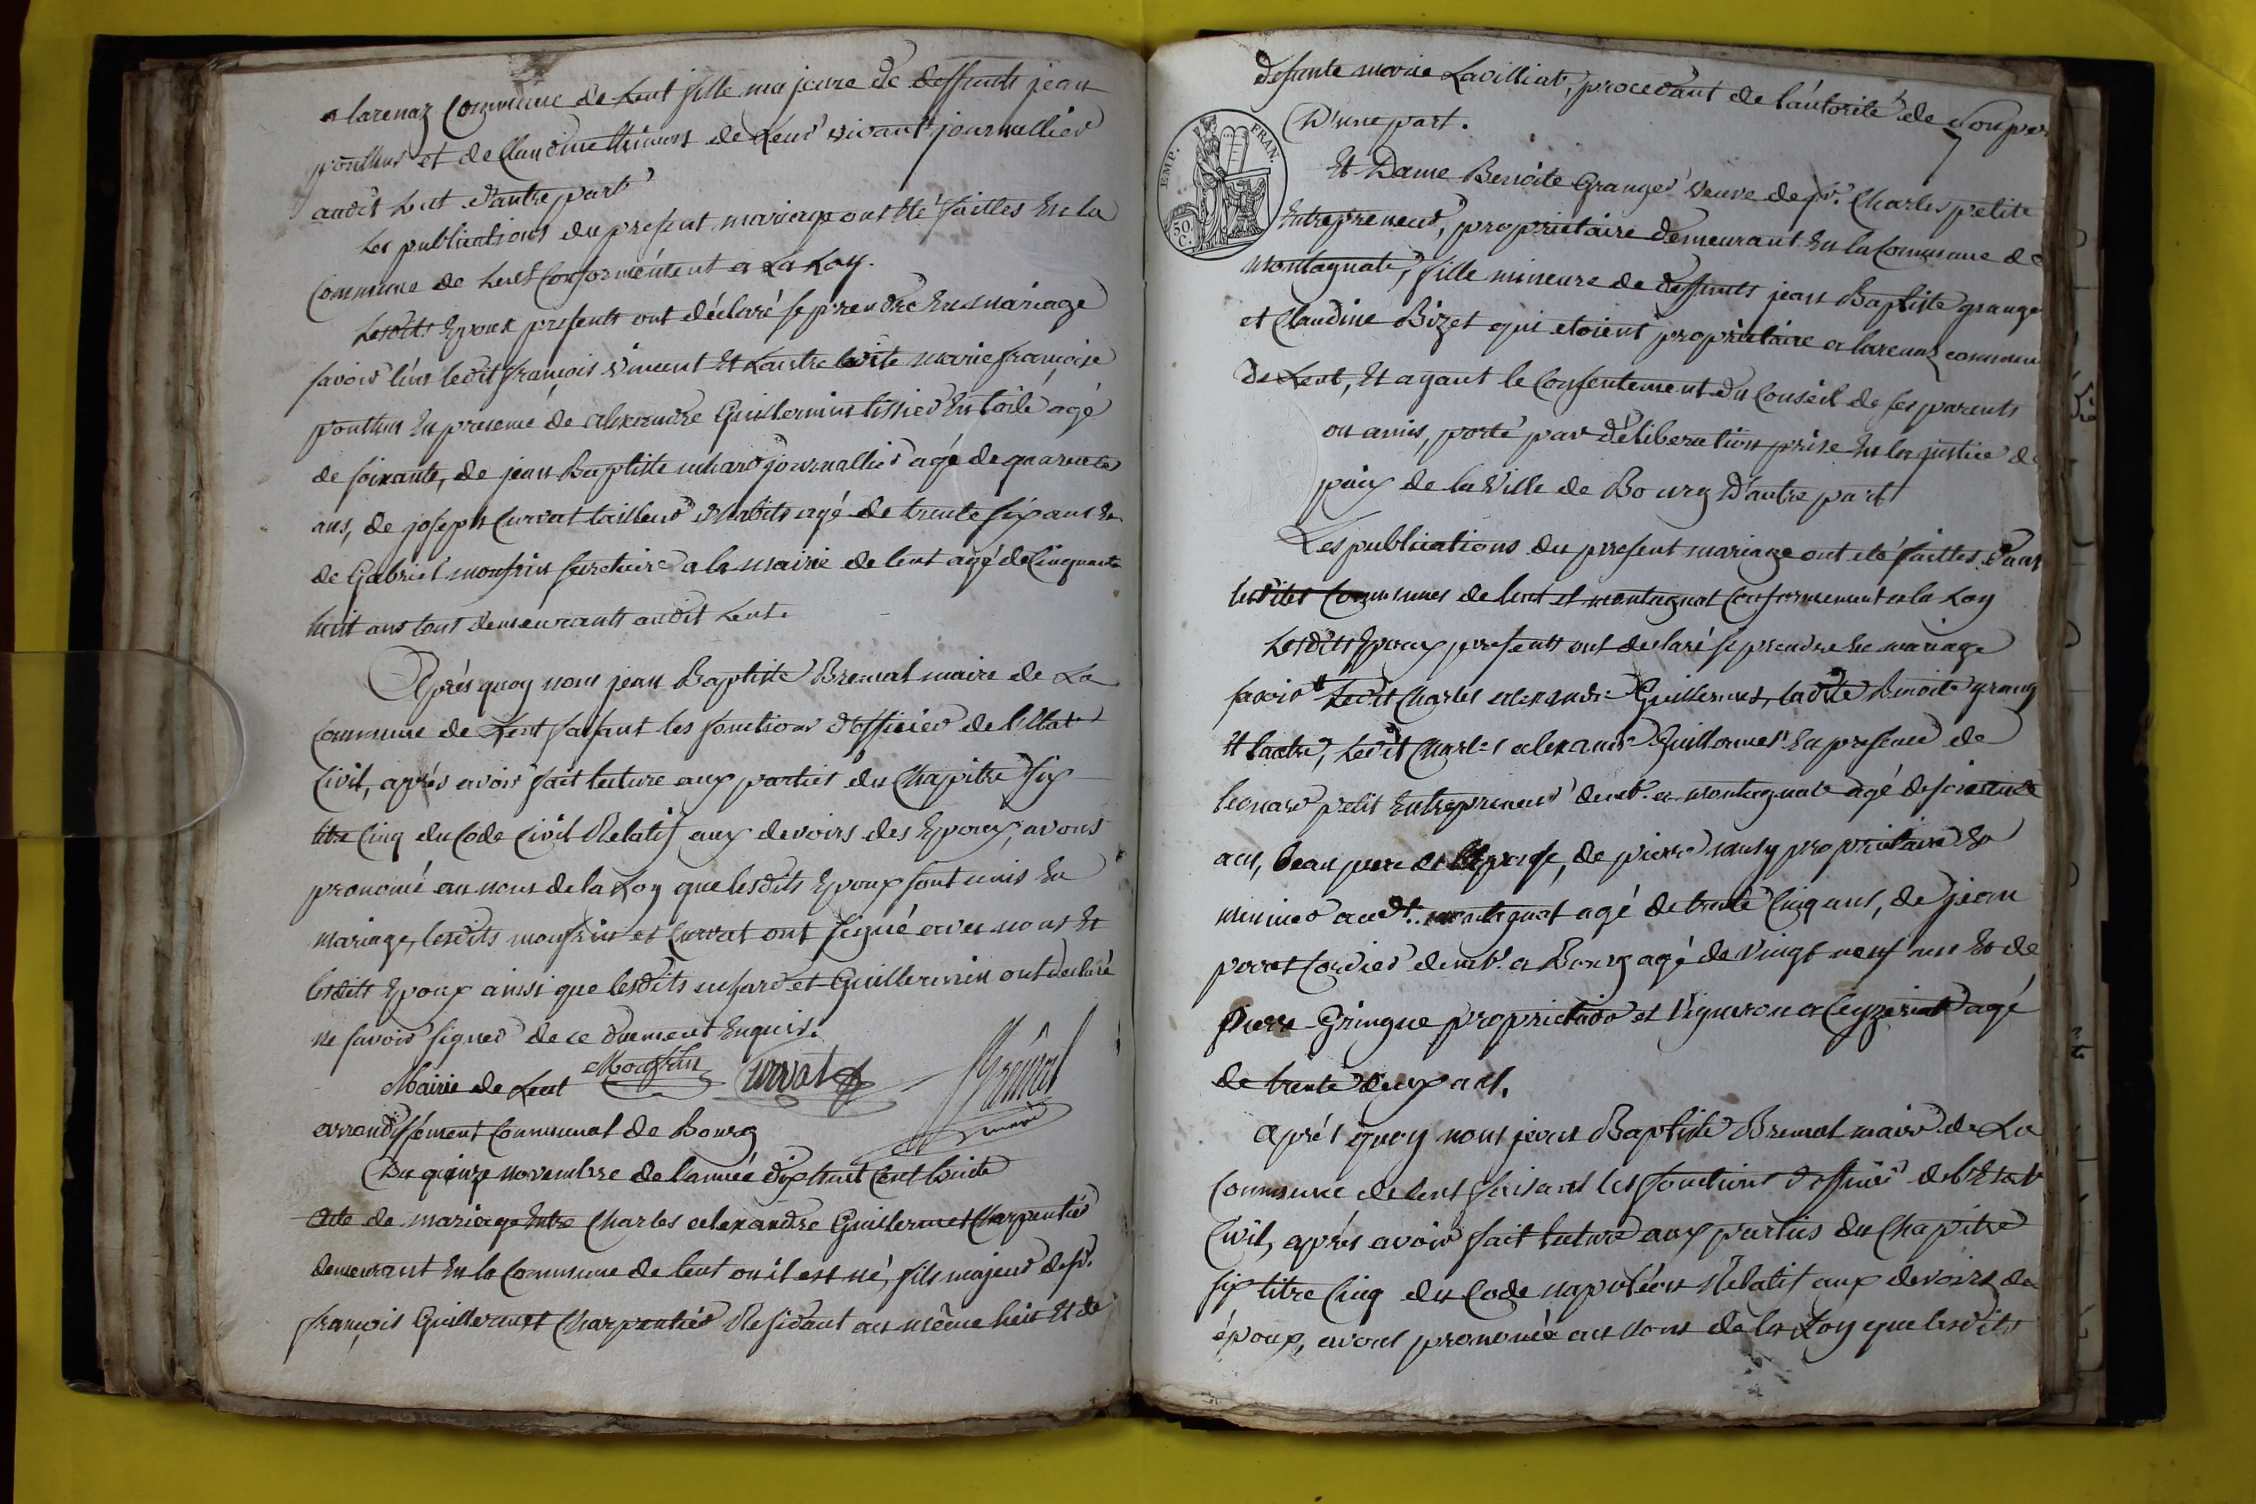 a larenaz Commune de Lent fille majeure de deffunts jean
ponthus et de Claudine de Leur vivant journallier
audit Lent d'autre part
Les publications du present mariage ont été failles En la
Commune de Lent Conformément a La Loy.
Lesdits Epoux presents ont déclaré se prendre En mariage
savoir l'un ledit françois vincent Et L'autre ladite marie françoise
ponthus En presence de alexandre Guillermin tissier En toile agé
de soixante, de jean Baptiste journallier agé de quarante
ans, de joseph Curvat tailleur d'habits agé de trente six ans Et
de Gabriel monfrin secretaire a la mairie de lent agé de Cinquante
huit ans tous demeurants audit Lent.
Après quoy nous jean Baptiste Brevat maire de La
Commune de Lent faisant les fonctions d'officier de l'Etat
Civil, après avoir fait lecture aux parties du Chapitre six
titre Cinq du Code Civil Relatif aux devoirs des Epoux, avons
prononcé au nom de la Loy que lesdits Epoux sont unis En
mariage, lesdits monfrin et Curvat ont signé avec nous Et
lesdits Epoux ainsi que lesdits et Guillermin ont declaré
ne savoir signer de ce duement Enquis.
Monfrin Curvat
Mairie de Lent
arrondissement Communal de Bourg
Du quinze novembre de l'année dix huit Cent
Acte de mariage Entre Charles alexandre Guillermet Charpentier
demeurant En la Commune de lent ou il est né, fils majeur de sr.
françois Guillermet Charpentier Residant au même lieu Et de
defunte marie Lavilliat, procedant de l'autorité de son per
D'une part.
EMP. FRAN.
50 C.
Et Dame Benoite Granger veuve de sr. Charles petit
Entrepreneur, proprietaire demeurant En la Commune de
montagnat, fille mineure de deffunts jean Baptiste grange
et Claudine Bizet qui etoient propriétaire a larenaz commun
de Lent, Et ayant le Consentement du Conseil de ses parents
ou amis, porté par déliberation prise En la justice de
paix de la Ville de Bourg D'autre part
Les publications du present mariage ont été failles dans
lesdites Communes de lent et montagnat Conformement a la Loy
Lesdits Epoux presents ont declaré se prendre En mariage
savoir Ledit Charles alexandre Guillermet, ladite Benoite grang
Et l'autre, Ledit Charles alexandre Guillermet En presence de
leonard petit Entrepreneur demt. a montagnat agé de soixante
ans, beau pere de l'Epouse, de pierre proprietaire Et
audt. montagnat agé de trente Cinq ans, de jean
perret Cordier demt. a Bourg agé de vingt neuf ans Et de
pierre Gringue proprietaire et Vigneron a Ceyzeriat agé
de trente deux ans.
Après quoy nous jean Baptiste Brevat maire de La
Commune de lent faisant les fonctions d'officier de l'Etat
Civil, après avoir fait lecture aux parties du Chapitre
six titre Cinq du Code napoléon Relatif aux devoirs de
époux, avons prononcé au nom de la Loy que lesdits